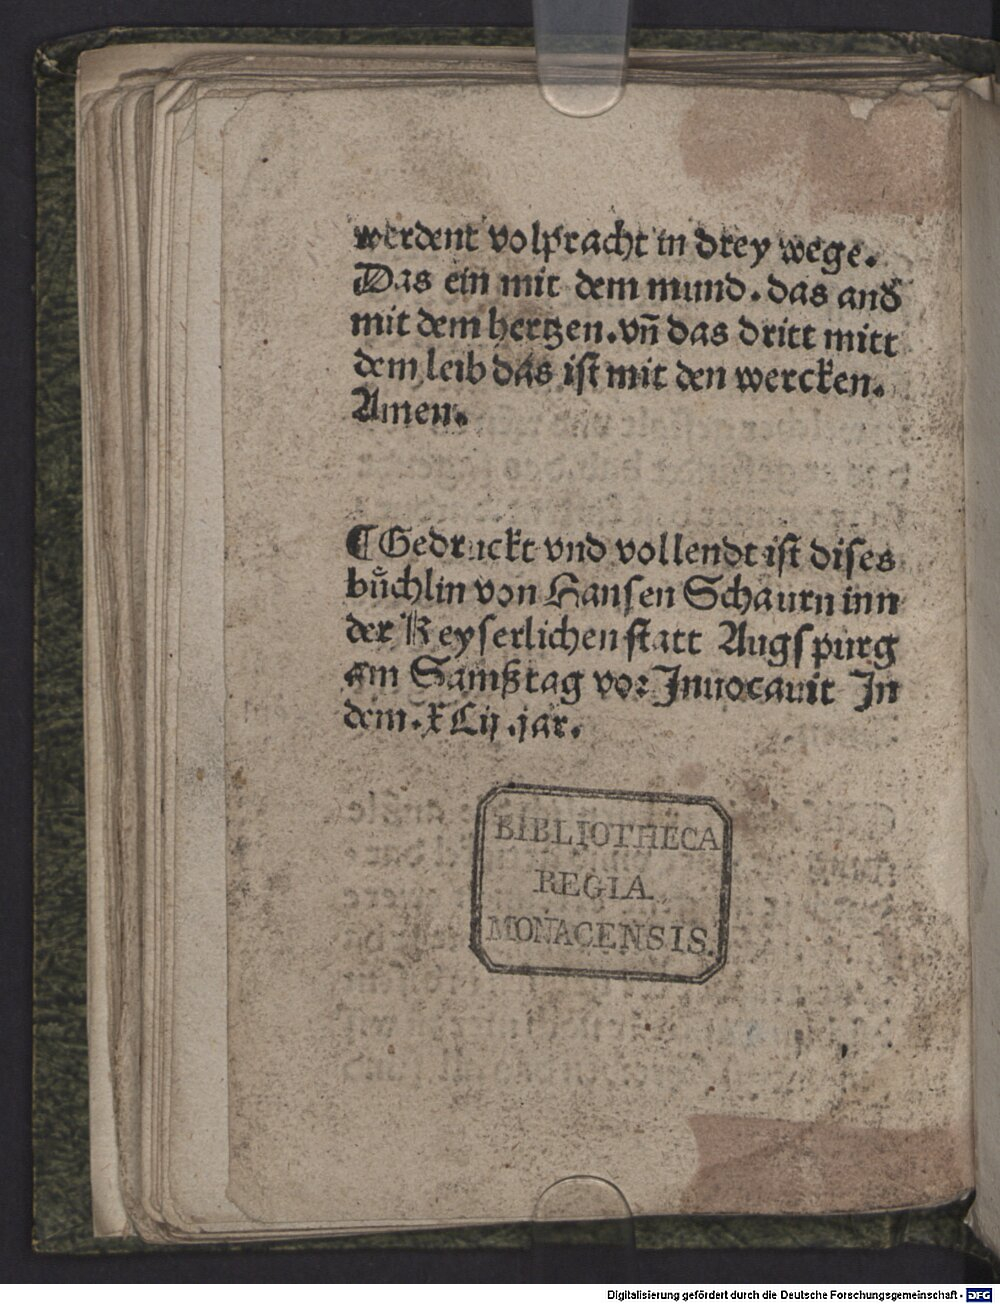 werdent volpracht in drey wege.
Das ein mit dem mund. das and̄
mit dem hertzen. vñ das dritt mitt
dem leib das ist mit den wercken.
Amen.
¶ Gedruckt vnd vollendt ist dises
buͤchlin von Hansen Schaurn inn
der Keyserlichen statt Augspurg
am Samßtag vor Inuocauit In
dem. xCij .jar.
BIBLIOTHECA
REGIA
MONACENSIS.
Digitalisierung gefördert durch die Deutsche Forschungsgemeinschaft - DFG